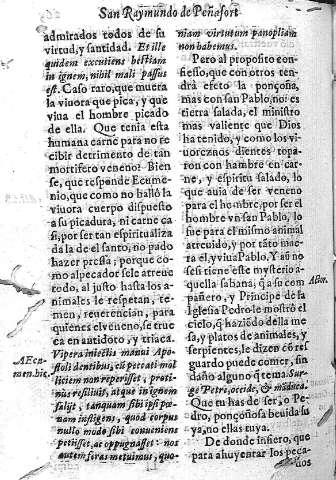 San Raymundo de Peñafort
admirados todos de su
virtud, y santidad. Et ille
quidem excutiens bestiam
in ignem, nihil mali passus
est. Caso raro, que muera
la viuora que pica, y que
viua el hombre picado
de ella. Que tenia esta
humana carne para no re
cibir detrimento de tan
mortifero veneno? Bien
se, que responde Ecume-
nio, que como no hallò la
viuora cuerpo dispuesto
a su picadura, ni carne ca
si, por ser tan espiritualiza
da la de el santo, no pudo
hazer pressa; porque co-
mo al pecador sele atreue
todo, al justo hasta los a-
nimales le respetan, te-
men, reuerencian, para
quienes el veneno, se true
ca en antidoto, y triaca.
Vipera iniectis manui Apo-
stoli dentibus, cũ peccati mol
liciem non reperisset, proti-
nus resiliuit, atque in ignem
salijt, tanquam sibi ipsi pœ-
nam infligens, quod corpus
nullo modo sibi conueniens
petijsset, ac oppugnasset: nos
autem feras metuimus, quo-
Æcu-
men. hic.
niam virtutum panopliam
non habemus.
Pero al proposito con
fiesso, que con otros ten-
drà efeto la ponçoña,
mas con San Pablo, no: es
tierra salada, el ministro
mas valiente que Dios
ha tenido, y como los vi-
uoreznos dientes topa-
ron con hambre en car-
ne, y espiritu salado, lo
que auia de ser veneno
para el hombre, por ser el
hombre vn san Pablo, lo
fue para el mismo animal
atreuido, y por tãto mue-
ra el, y viua Pablo. Y aũ no
se si tiene este mysterio a-
quella sabana, q̃ a su com
pañero, y Principe de la
Iglesia Pedro le mostrò el
cielo, q̃ haziẽdo della me
sa, y platos de animales, y
serpientes, le dizen cõ res
guardo puede comer, sin
daño alguno q̃ tema. Sur-
ge Petre, occide, & manduca.
Que tu has de ser, o Pe-
dro, ponçoñosa beuida su
ya, no ellas tuya.
De donde infiero, que
para ahuyentar los peca-
dos
Actor.